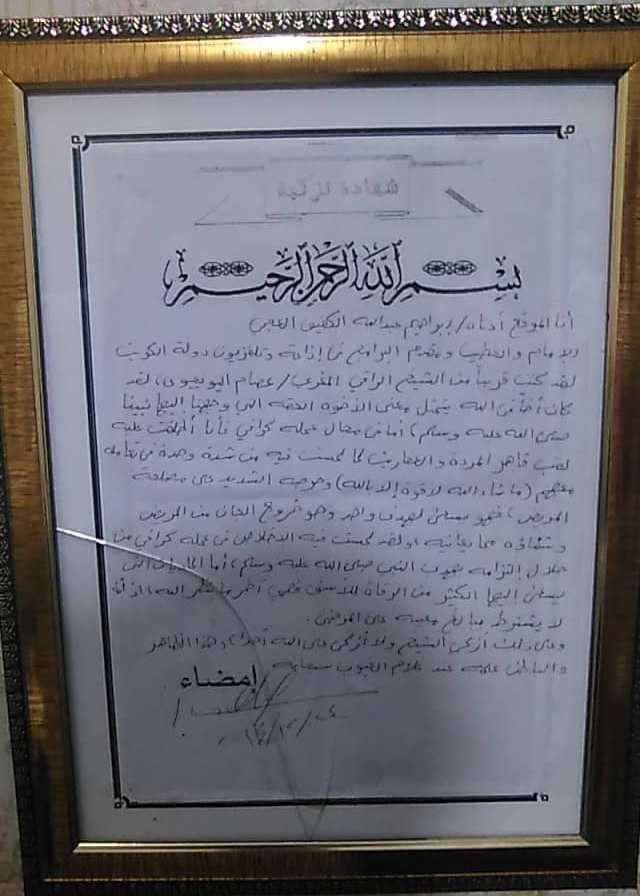 شهادة تزكية
بسم الله الرحمن الرحيم
أنا الموقع أدناه / إبراهيم عبدالله
الامام والخطيب ومقدم البرامج في إذاعة وتلفزيون دولة الكويت
لقد كنت قريباً من الشيخ الراقي المغربي / عصام ، لقد
كان أخاً في الله يتمثل معنى الأخوه الحقه التي وجهنا إليها نبينا
صلى الله عليه وسلم ، أما في مجال عمله كراقي فأنا أطلقت عليه
لقب قاهر المردة والعفاريت لما لمست فيه من شدة وحدة في تعامله
معهم (ما شاء الله لا قوة إلا بالله) وحرصه الشديد على مصلحة
المريض ، فهو يسعى لهدف واحد وهو خروج الجان من المريض
وشفاؤه مما يعانيه ، ولقد لمست فيه الاخلاص في عمله كراقي من
خلال إلتزامه بهدي النبي صلى الله عليه وسلم ، أما الماديات التي
يسعى إليها الكثير من الرقاة للأسف فهي آخر ما ينظر إليه ، اذ أنه
لا يشترط مبالغ معينة على المرضى .
وعلى ذلك أزكي الشيخ ولا أزكي على الله أحداً ، وهذا الظاهر
والباطن علمه عند علام الغيوب سبحانه
إمضاء